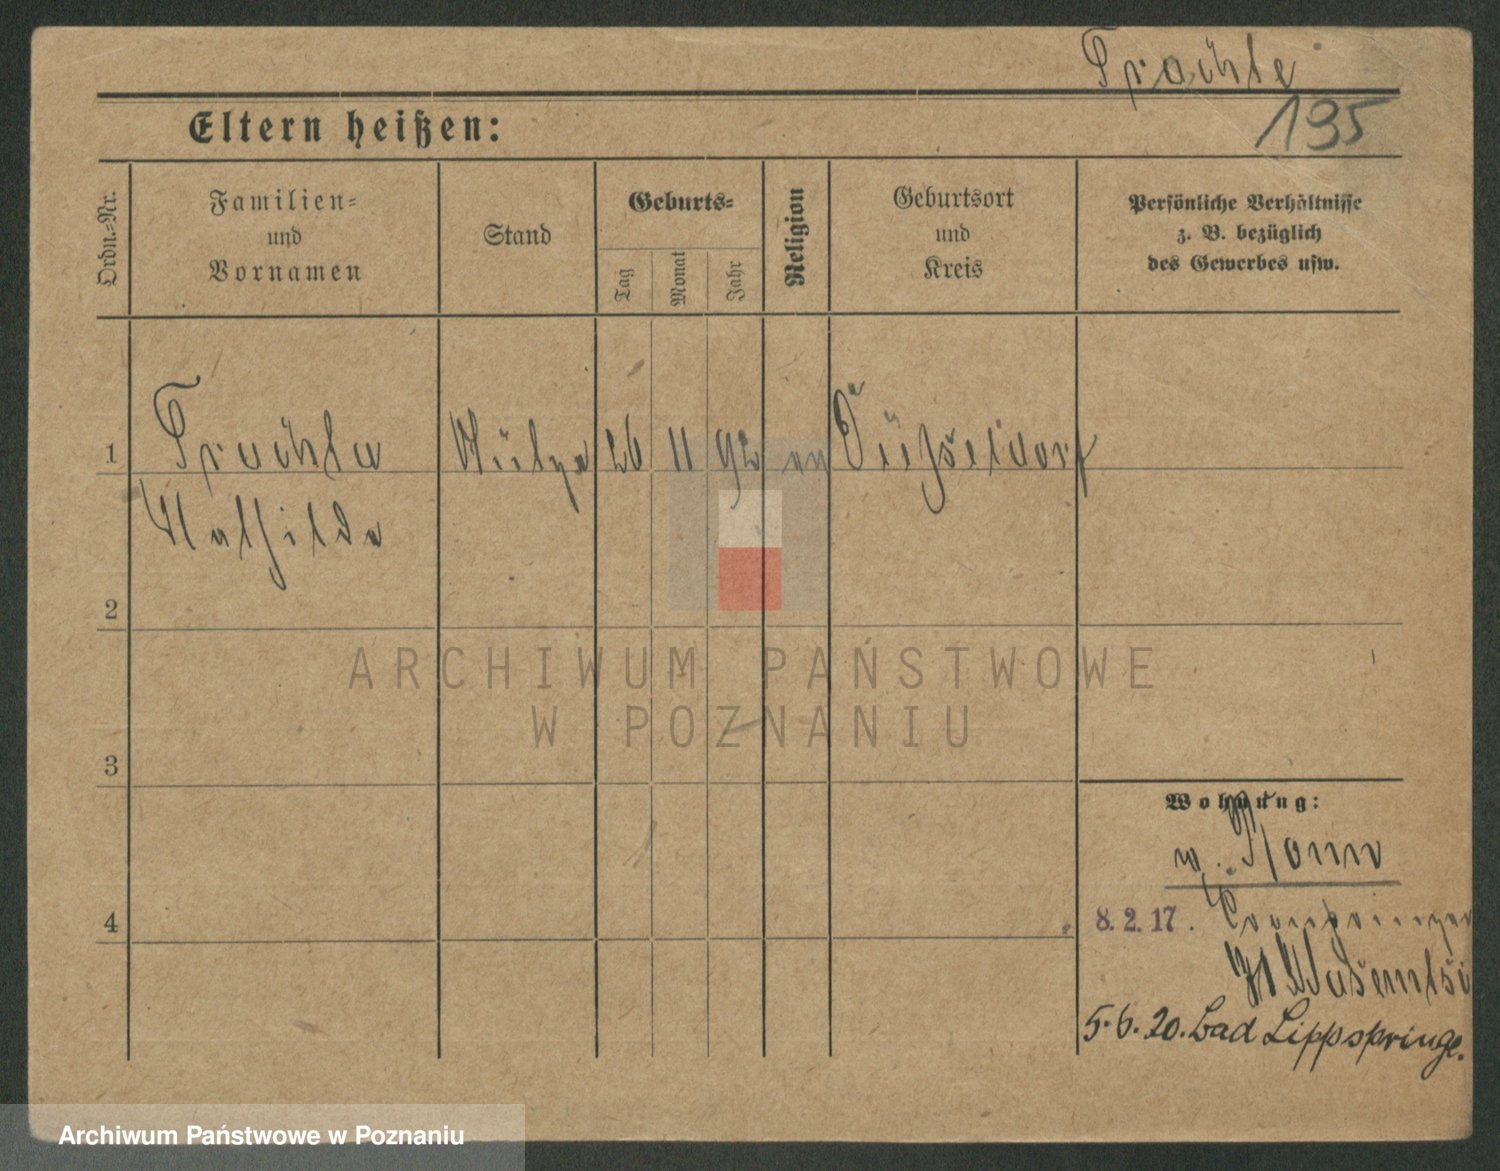 Trachte
195
Eltern heißen:
Ordn.-Nr.
Familien-
und
Vornamen
Stand
Geburts-
Tag
Monat
Jahr
Religion
Geburtsort
und
Kreis
Persönliche Verhältnisse
z. B. bezüglich
des Gewerbes usw.
1 26 11 92 ev Düsseldorf
Mathilde
2
ARCHIWUM PAŃSTWOWE
W POZNANIU
3
Wohnung:
4
8. 2. 17.
5.6.20. Bad Lippspringe.
Archiwum Państwowe w Poznaniu